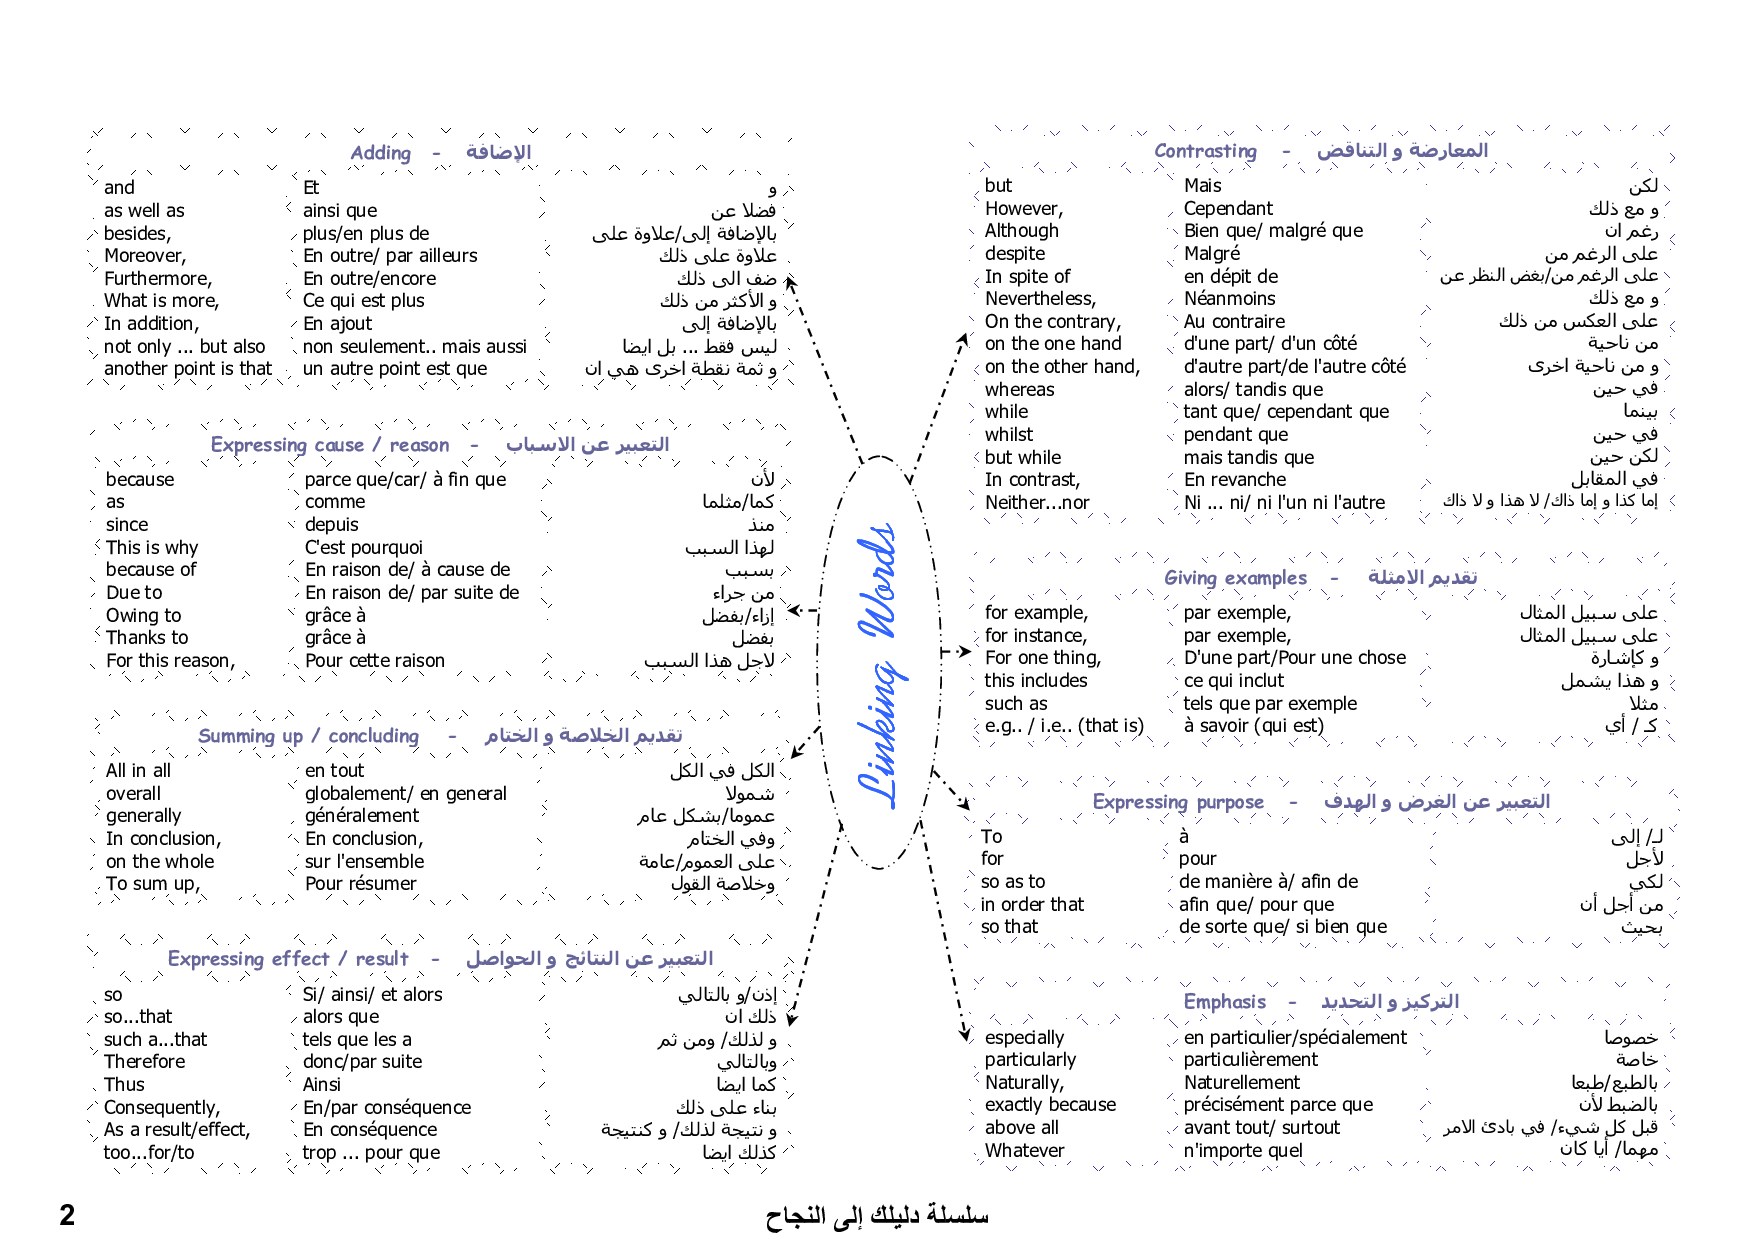 Adding - الإضافة
and Et و
as well as ainsi que فضلا عن
besides, plus/en plus de بالإضافة إلى/علاوة على
Moreover, En outre/ par ailleurs علاوة على ذلك
Furthermore, En outre/encore ضف الى ذلك
What is more, Ce qui est plus و الأكثر من ذلك
In addition, En ajout بالإضافة إلى
not only ... but also non seulement.. mais aussi ليس فقط ... بل ايضا
another point is that un autre point est que و ثمة نقطة اخرى هي ان
Expressing cause / reason - التعبير عن الاسباب
because parce que/car/ à fin que لأن
as comme كما/مثلما
since depuis منذ
This is why C'est pourquoi لهذا السبب
because of En raison de/ à cause de بسبب
Due to En raison de/ par suite de من جراء
Owing to grâce à إزاء/بفضل
Thanks to grâce à بفضل
For this reason, Pour cette raison لاجل هذا السبب
Summing up / concluding - تقديم الخلاصة و الختام
All in all en tout الكل في الكل
overall globalement/ en general شمولا
generally généralement عموما/بشكل عام
In conclusion, En conclusion, وفي الختام
on the whole sur l'ensemble على العموم/عامة
To sum up, Pour résumer وخلاصة القول
Expressing effect / result - التعبير عن النتائج و الحواصل
so Si/ ainsi/ et alors إذن/و بالتالي
so...that alors que ذلك ان
such a...that tels que les a و لذلك/ ومن ثم
Therefore donc/par suite وبالتالي
Thus Ainsi كما ايضا
Consequently, En/par conséquence بناء على ذلك
As a result/effect, En conséquence و نتيجة لذلك/ و كنتيجة
too...for/to trop ... pour que كذلك ايضا
Linking Words
Contrasting - المعارضة و التناقض
but Mais لكن
However, Cependant و مع ذلك
Although Bien que/ malgré que رغم ان
despite Malgré على الرغم من
In spite of en dépit de على الرغم من/بغض النظر عن
Nevertheless, Néanmoins و مع ذلك
On the contrary, Au contraire على العكس من ذلك
on the one hand d'une part/ d'un côté من ناحية
on the other hand, d'autre part/de l'autre côté و من ناحية اخرى
whereas alors/ tandis que في حين
while tant que/ cependant que بينما
whilst pendant que في حين
but while mais tandis que لكن حين
In contrast, En revanche في المقابل
Neither...nor Ni ... ni/ ni l'un ni l'autre إما كذا و إما ذاك/ لا هذا و لا ذاك
Giving examples - تقديم الامثلة
for example, par exemple, على سبيل المثال
for instance, par exemple, على سبيل المثال
For one thing, D'une part/Pour une chose و كإشارة
this includes ce qui inclut و هذا يشمل
such as tels que par exemple مثلا
e.g.. / i.e.. (that is) à savoir (qui est) كـ / أي
Expressing purpose - التعبير عن الغرض و الهدف
To à لـ/ إلى
for pour لأجل
so as to de manière à/ afin de لكي
in order that afin que/ pour que من أجل أن
so that de sorte que/ si bien que بحيث
Emphasis - التركيز و التحديد
especially en particulier/spécialement خصوصا
particularly particulièrement خاصة
Naturally, Naturellement بالطبع/طبعا
exactly because précisément parce que بالضبط لأن
above all avant tout/ surtout قبل كل شيء/ في بادئ الامر
Whatever n'importe quel مهما/ أيا كان
2
سلسلة دليلك إلى النجاح